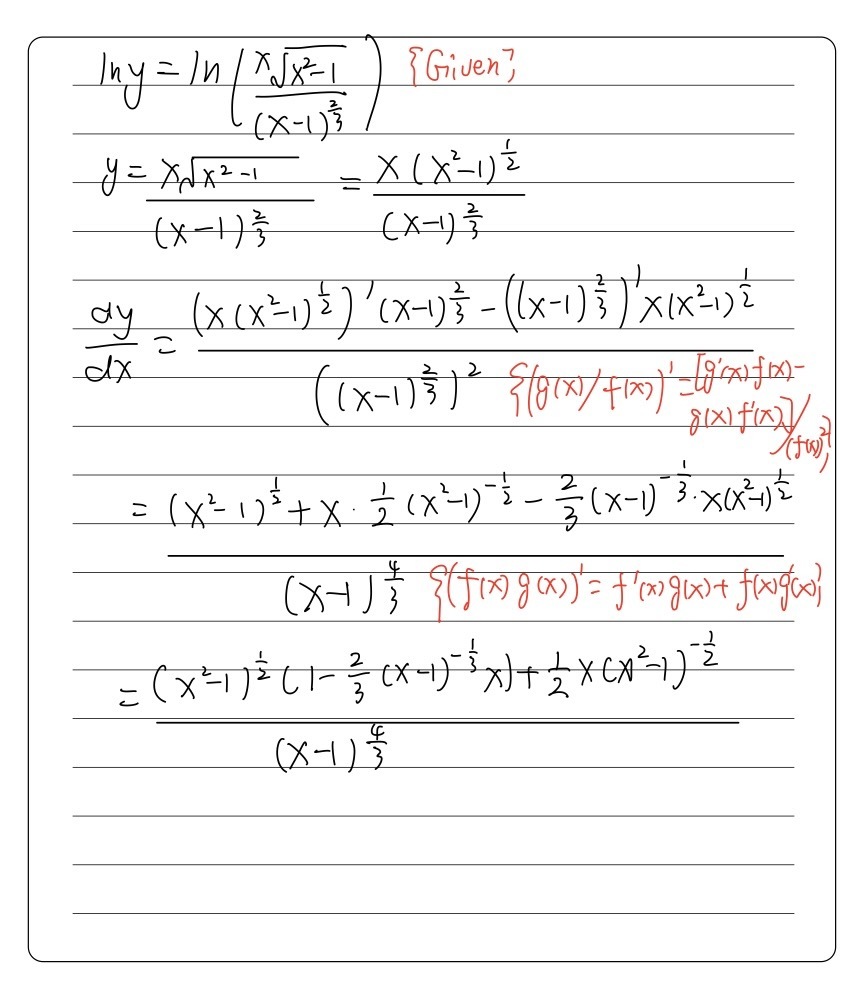 ln y = ln ( x√(x²-1) / (x-1)^(2/3) ) {Given}
y = x√(x²-1) / (x-1)^(2/3) = x(x²-1)^(1/2) / (x-1)^(2/3)
dy/dx = [ (x(x²-1)^(1/2))' (x-1)^(2/3) - ((x-1)^(2/3))' x(x²-1)^(1/2) ] / ((x-1)^(2/3))²
{(g(x)/f(x))' = [g'(x) f(x) -
g(x) f'(x)]/
(f(x))²}
= [ (x²-1)^(1/2) + x · 1/2 (x²-1)^(-1/2) - 2/3 (x-1)^(-1/3) · x(x²-1)^(1/2) ] / (x-1)^(4/3)
{(f(x) g(x))' = f'(x) g(x) + f(x) g'(x)}
= [ (x²-1)^(1/2) (1 - 2/3 (x-1)^(-1/3) x) + 1/2 x (x²-1)^(-1/2) ] / (x-1)^(4/3)